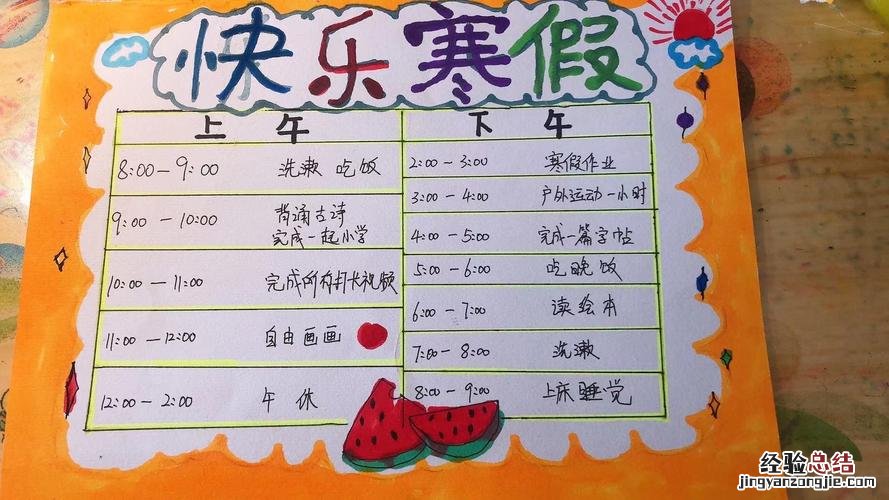 快乐寒假
上午
8:00-9:00 洗漱 吃饭
9:00-10:00 背诵古诗
完成一起小学
10:00-11:00 完成所有打卡视频
11:00-12:00 自由画画
12:00-2:00 午休
下午
2:00-3:00 寒假作业
3:00-4:00 户外运动一小时
4:00-5:00 完成一篇字帖
5:00-6:00 吃晚饭
6:00-7:00 读绘本
7:00-8:00 洗漱
8:00-9:00 上床睡觉
经验总结
jingyanzongjie.com